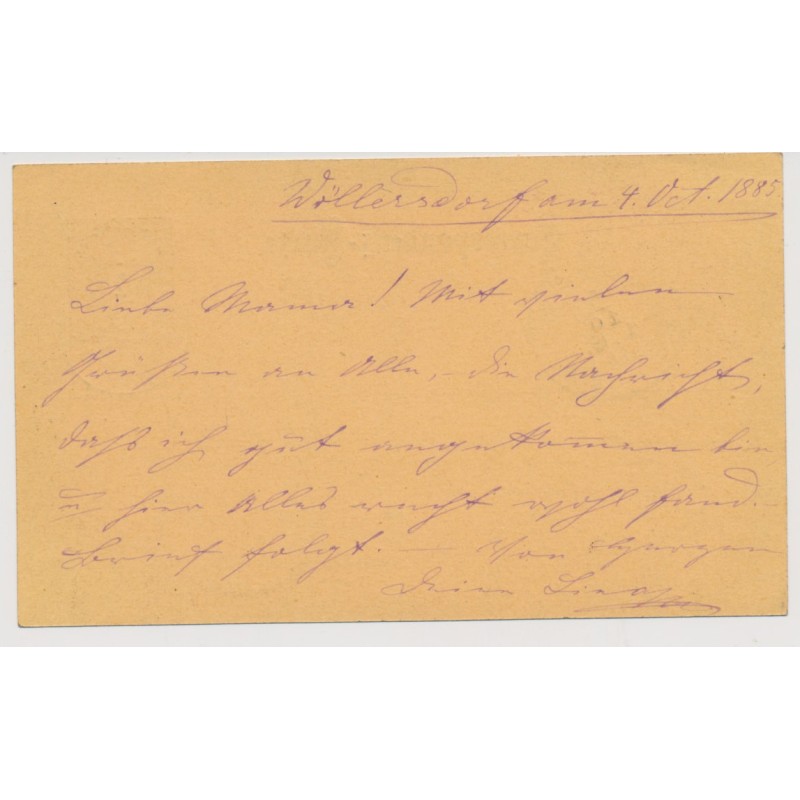 Wöllersdorf am 4. Oct. 1885
Liebe Mama! Mit vielen
Grüßen an Alle, – die Nachricht,
daß ich gut angekommen bin
u hier Alles recht wohl fand. –
Brief folgt. – Von Herzen
Deine